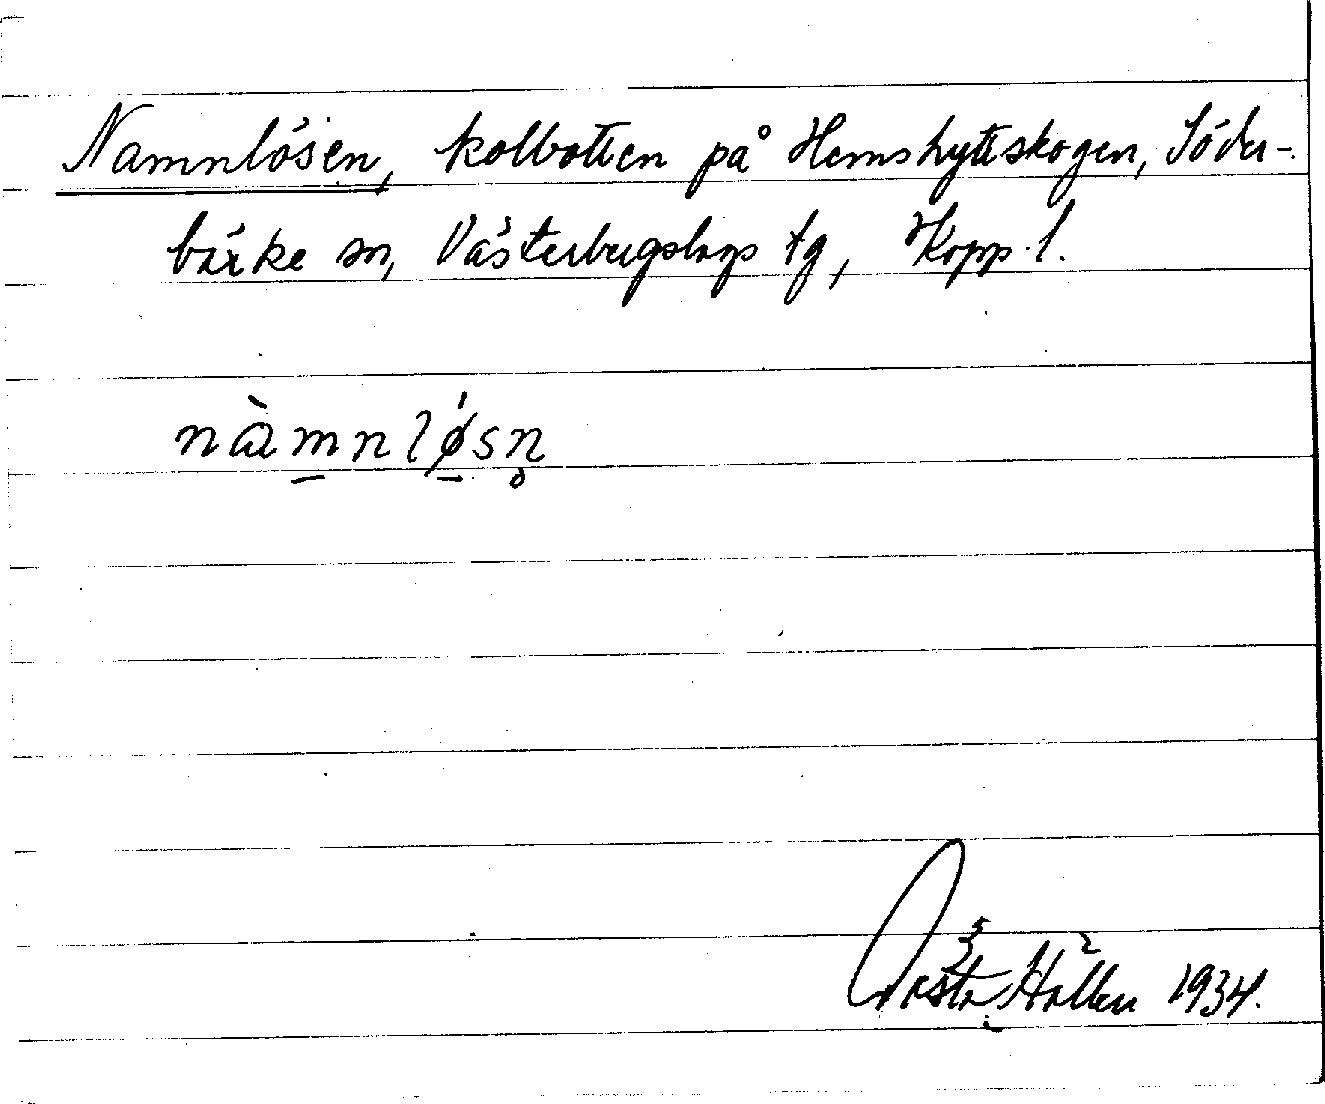 Namnlösen, kolbotten på Hemshytteskogen, Söder-
bärke sn, Västerbergslags tg, Kopp. l.
nàmnlǿsn̥
Gösta Hållen 1934.